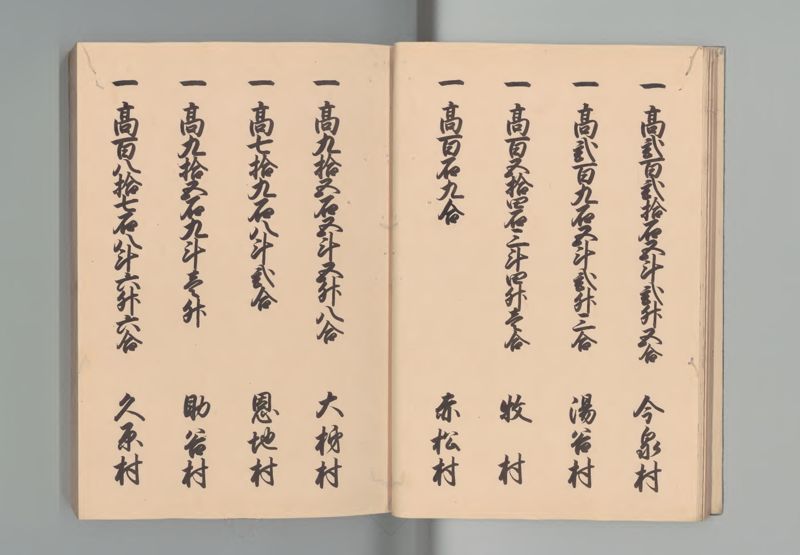 一 高弐百弐拾石五斗弐升五合 今泉村
一 高弐百九石五斗弐升三合 湯谷村
一 高百五拾四石三斗四升壱合 牧村
一 高百石九合 赤松村
一 高九拾五石五斗五升八合 大村
一 高七拾九石八斗弐合 恩地村
一 高九拾五石九斗壱升 助谷村
一 高百八拾七石八斗六升六合 久原村